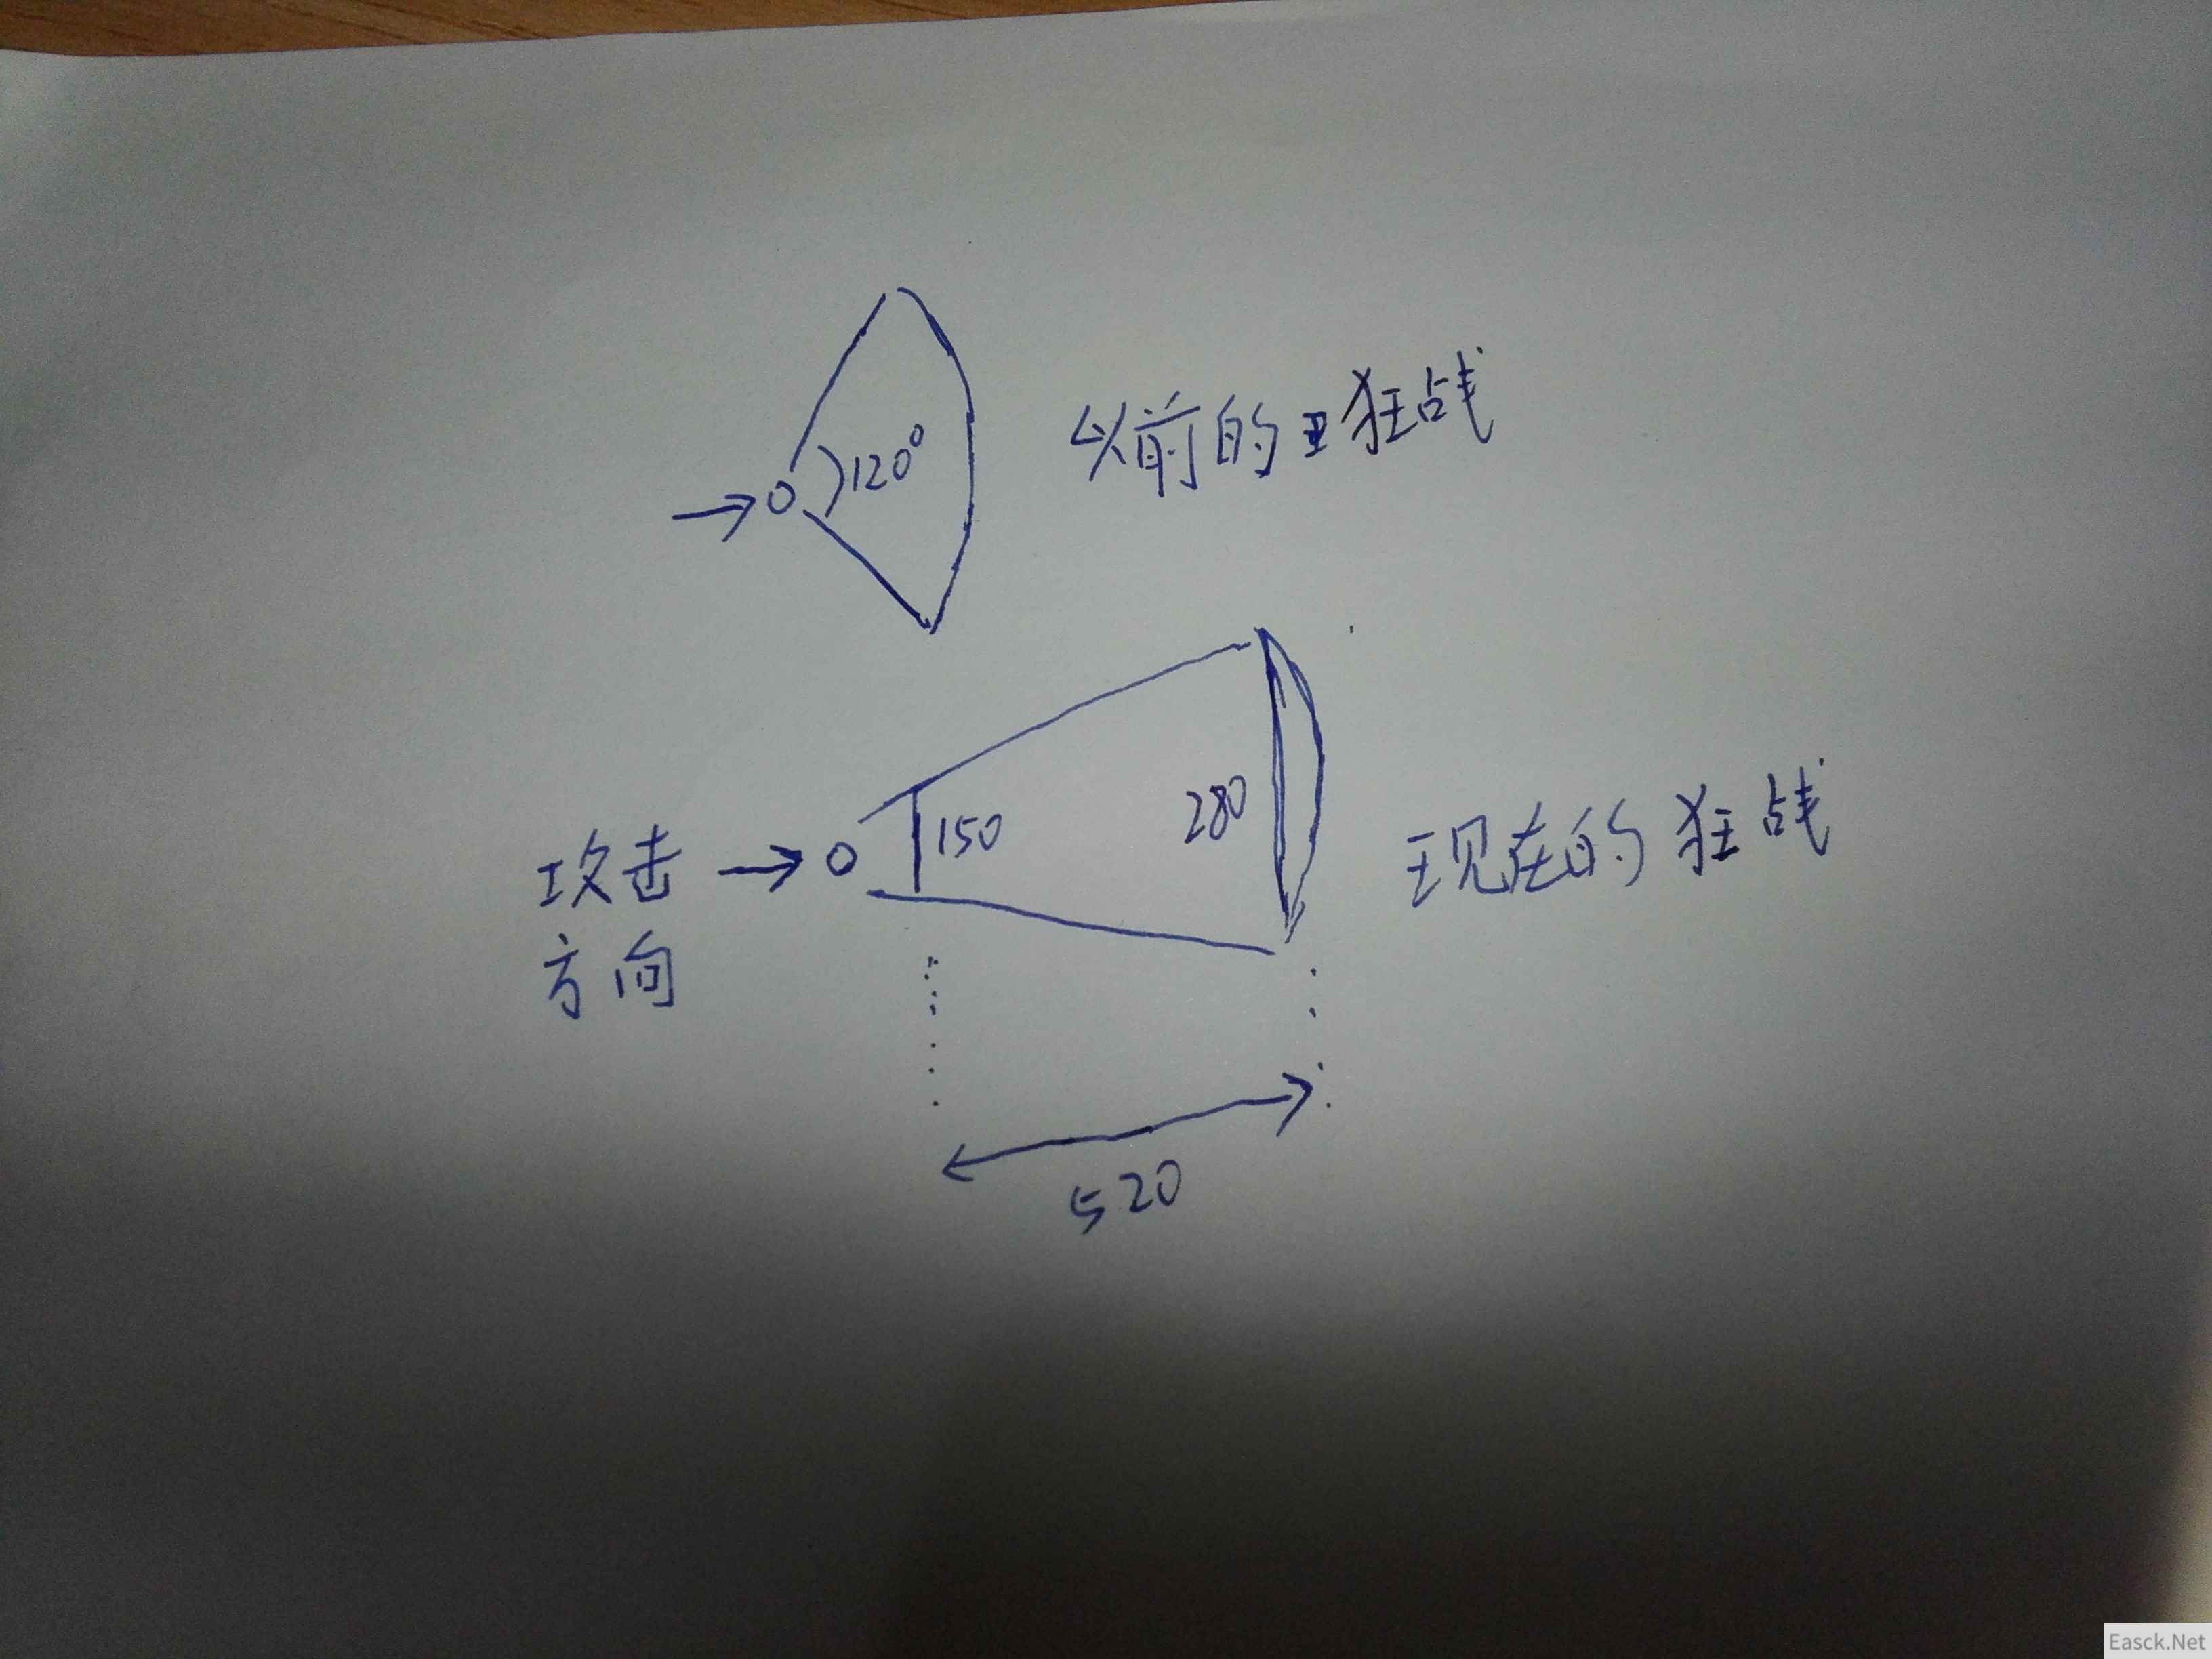 120°
以前的狂战
150
280
攻击
方向
现在的狂战
520
Easck.Net